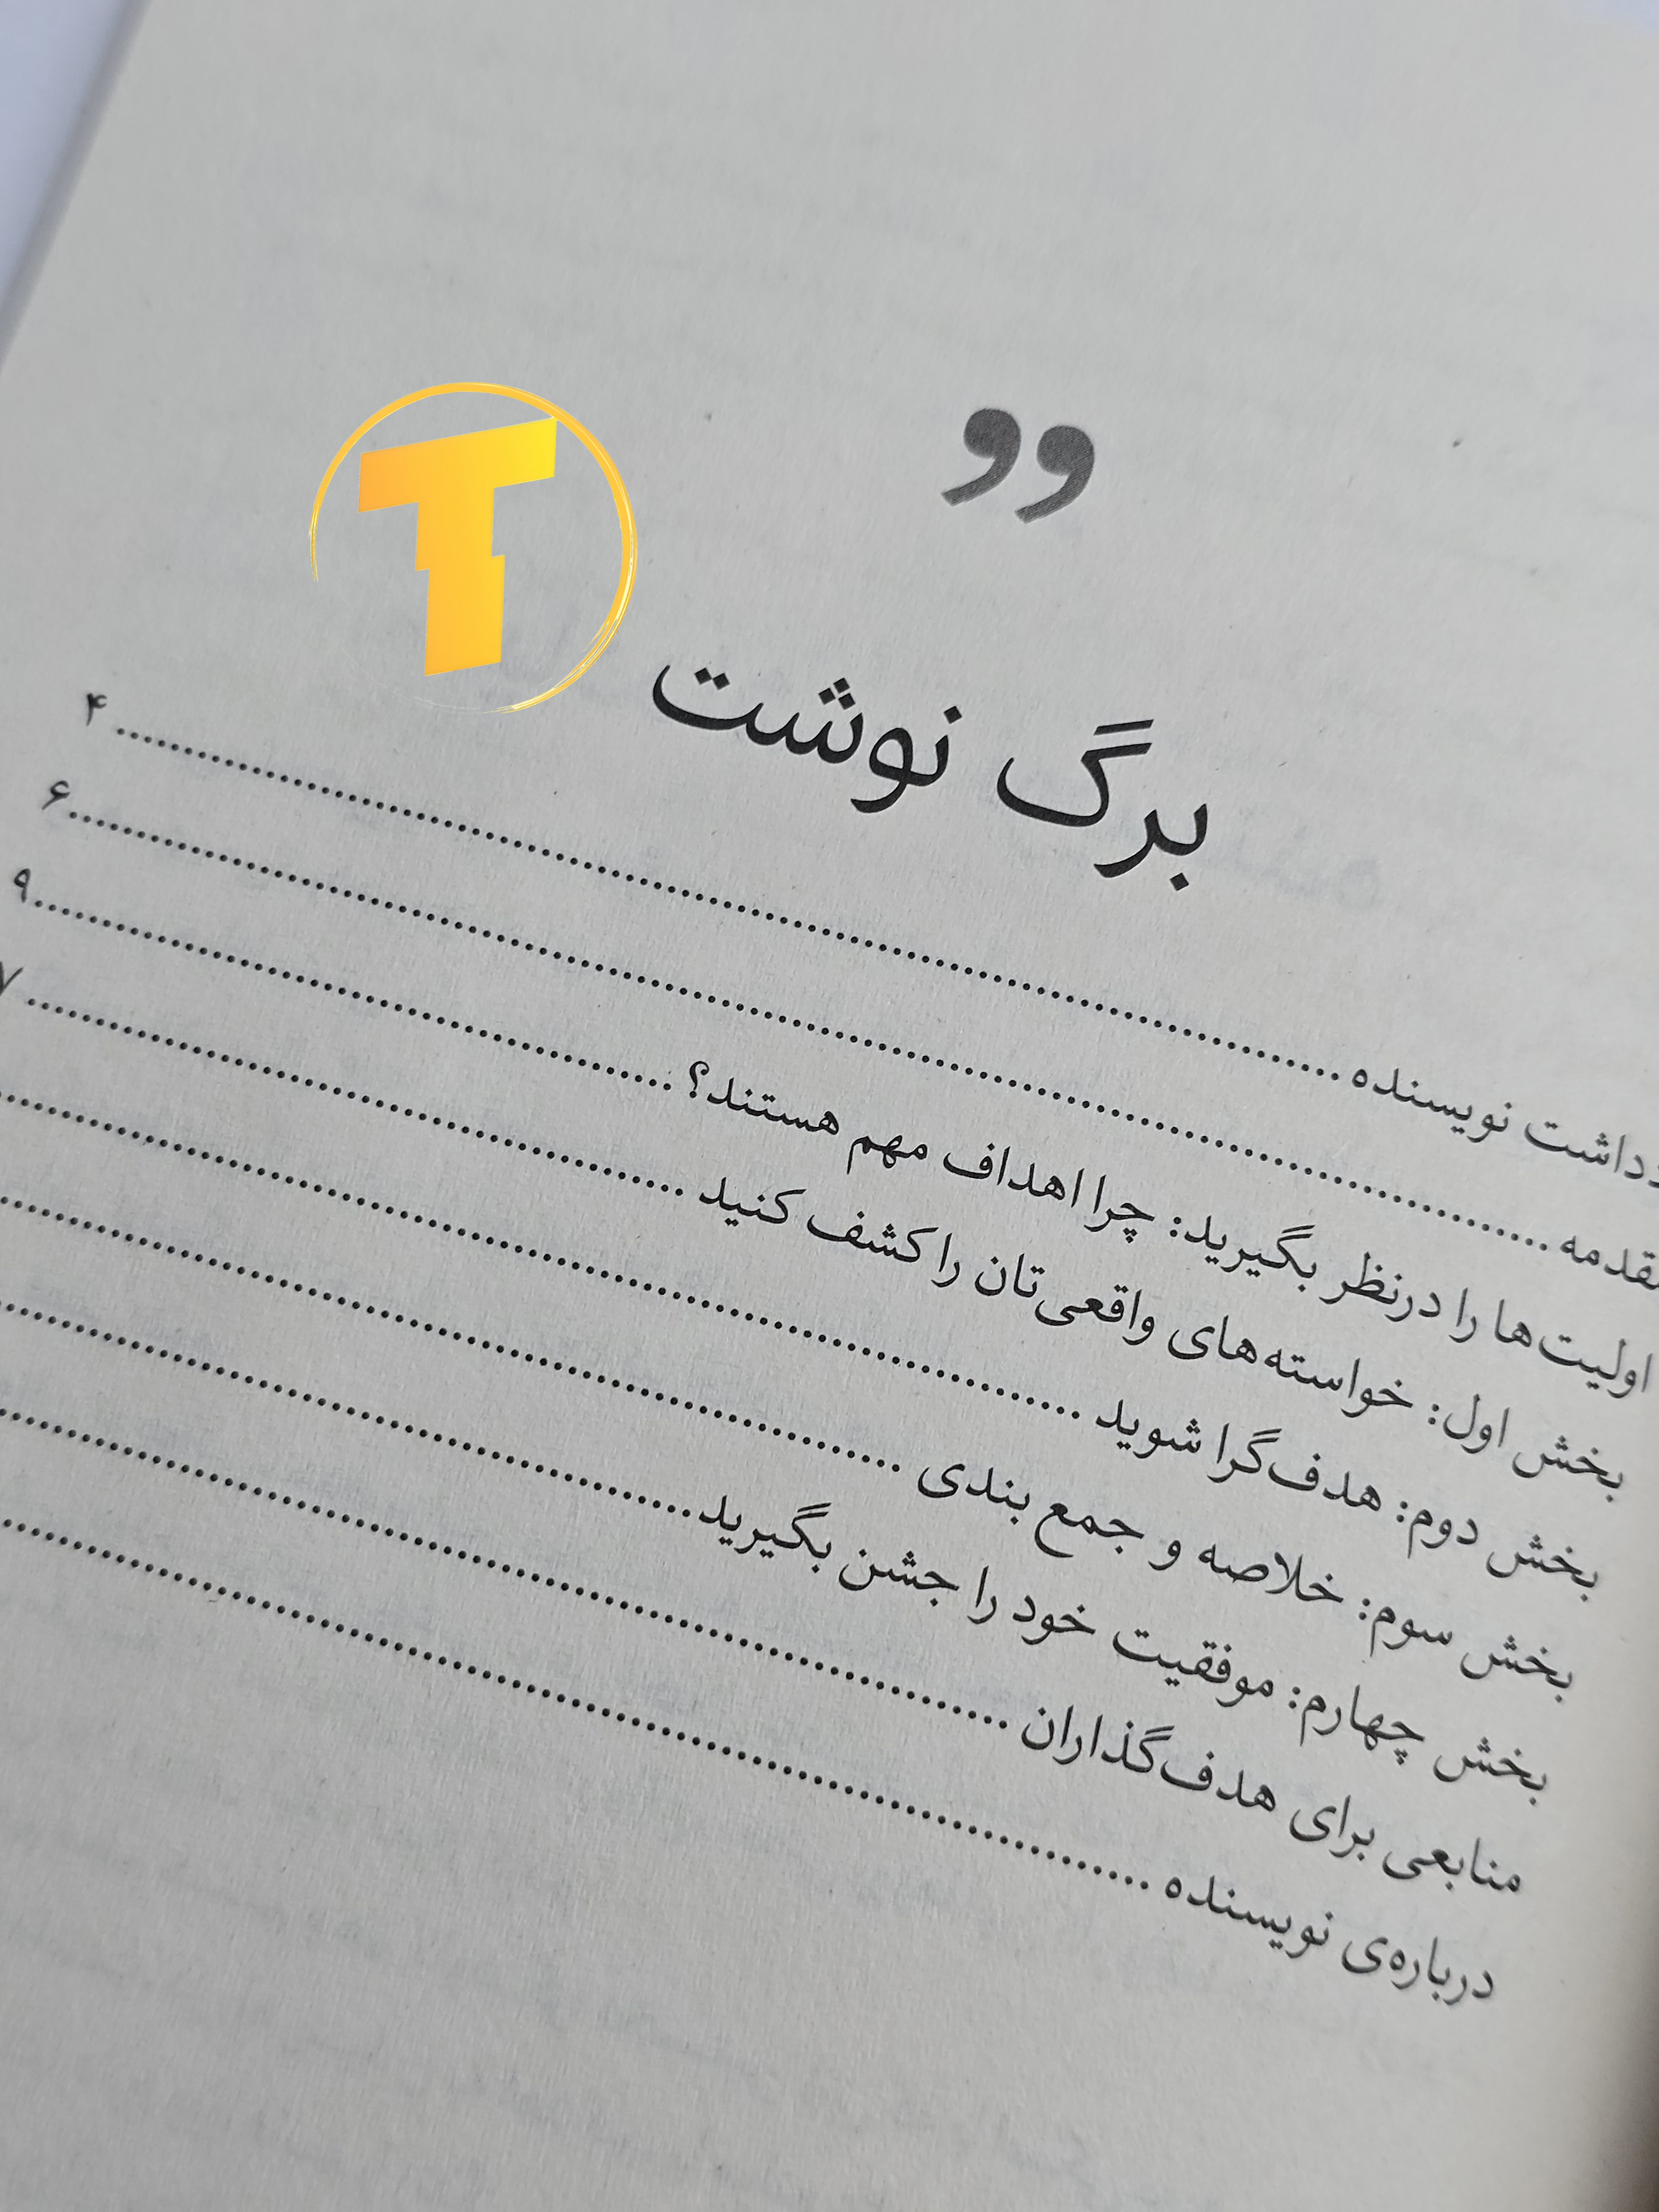 برگ نوشت
نویسنده ........ ۴
........ ۶
اولیت‌ها را درنظر بگیرید: چرا اهداف مهم هستند؟ ........ ۹
بخش اول: خواسته‌های واقعی‌تان را کشف کنید ........
بخش دوم: هدف‌گرا شوید ........
بخش سوم: خلاصه و جمع بندی ........
بخش چهارم: موفقیت خود را جشن بگیرید ........
منابعی برای هدف‌گذاران ........
درباره‌ی نویسنده ........
T